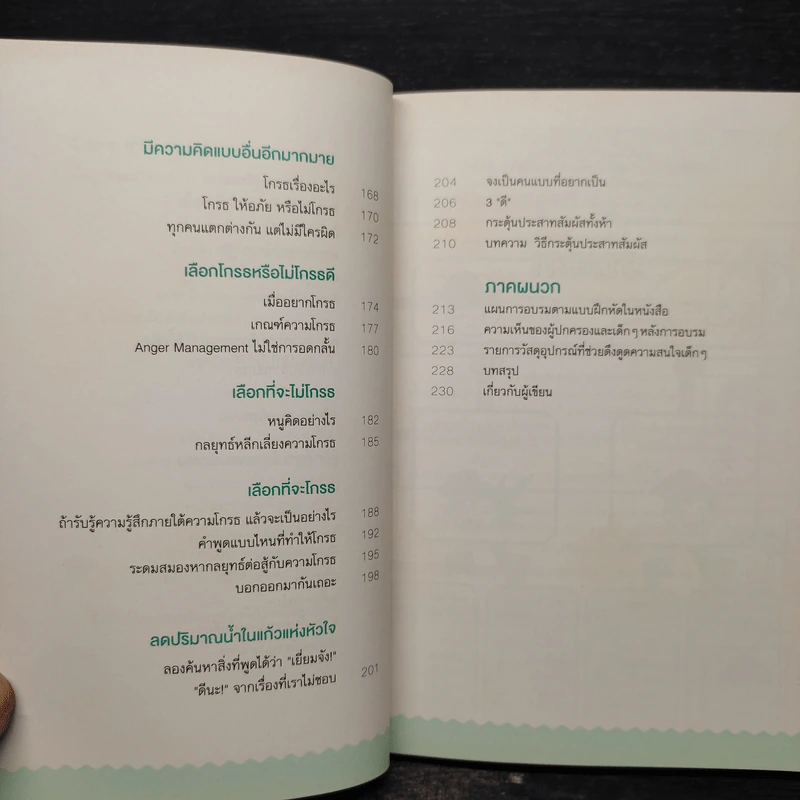 มีความคิดแบบอื่นอีกมากมาย
โกรธเรื่องอะไร 168
โกรธ ให้อภัย หรือไม่โกรธ 170
ทุกคนแตกต่างกัน แต่ไม่มีใครผิด 172
เลือกโกรธหรือไม่โกรธดี
เมื่ออยากโกรธ 174
เกณฑ์ความโกรธ 177
Anger Management ไม่ใช่การอดกลั้น 180
เลือกที่จะไม่โกรธ
หนูคิดอย่างไร 182
กลยุทธ์หลีกเลี่ยงความโกรธ 185
เลือกที่จะโกรธ
ถ้ารับรู้ความรู้สึกภายใต้ความโกรธ แล้วจะเป็นอย่างไร 188
คำพูดแบบไหนที่ทำให้โกรธ 192
ระดมสมองหากลยุทธ์ต่อสู้กับความโกรธ 195
บอกออกมากันเถอะ 198
ลดปริมาณน้ำในแก้วแห่งหัวใจ
ลองค้นหาสิ่งที่พูดได้ว่า "เยี่ยมจัง!"
"ดีนะ!" จากเรื่องที่เราไม่ชอบ 201
204 จงเป็นคนแบบที่อยากเป็น
206 3 "ดี"
208 กระตุ้นประสาทสัมผัสทั้งห้า
210 บทความ วิธีกระตุ้นประสาทสัมผัส
ภาคผนวก
213 แผนการอบรมตามแบบฝึกหัดในหนังสือ
216 ความเห็นของผู้ปกครองและเด็กๆ หลังการอบรม
223 รายการวัสดุอุปกรณ์ที่ช่วยดึงดูดความสนใจเด็กๆ
228 บทสรุป
230 เกี่ยวกับผู้เขียน